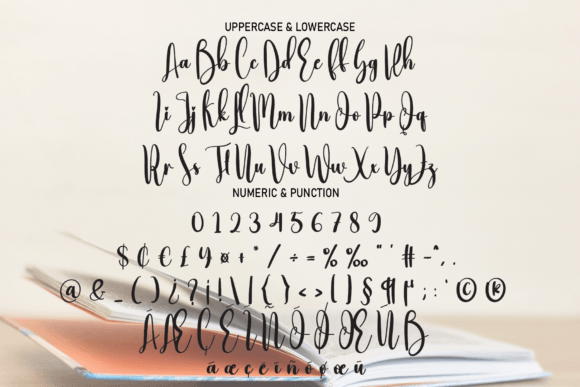 UPPERCASE & LOWERCASE
Aa Bb Cc Dd Ee Ff Gg Hh
Ii Jj Kk Ll Mm Nn Oo Pp Qq
Rr Ss Tt Uu Vv Ww Xx Yy Zz
NUMERIC & PUNCTION
0 1 2 3 4 5 6 7 8 9
$ ₵ € £ ¥ ¤ + * / ÷ = % ‰ " ' # - ^ , .
@ & _ ( ) ¿ ? ¡ ! \ | { } < > [ ] § ¶ ; : ' © ®
Á Æ Ç Ë Ï Ñ Ó Ø Œ Ü ß
á æ ç ë ï ñ ó ø œ ü